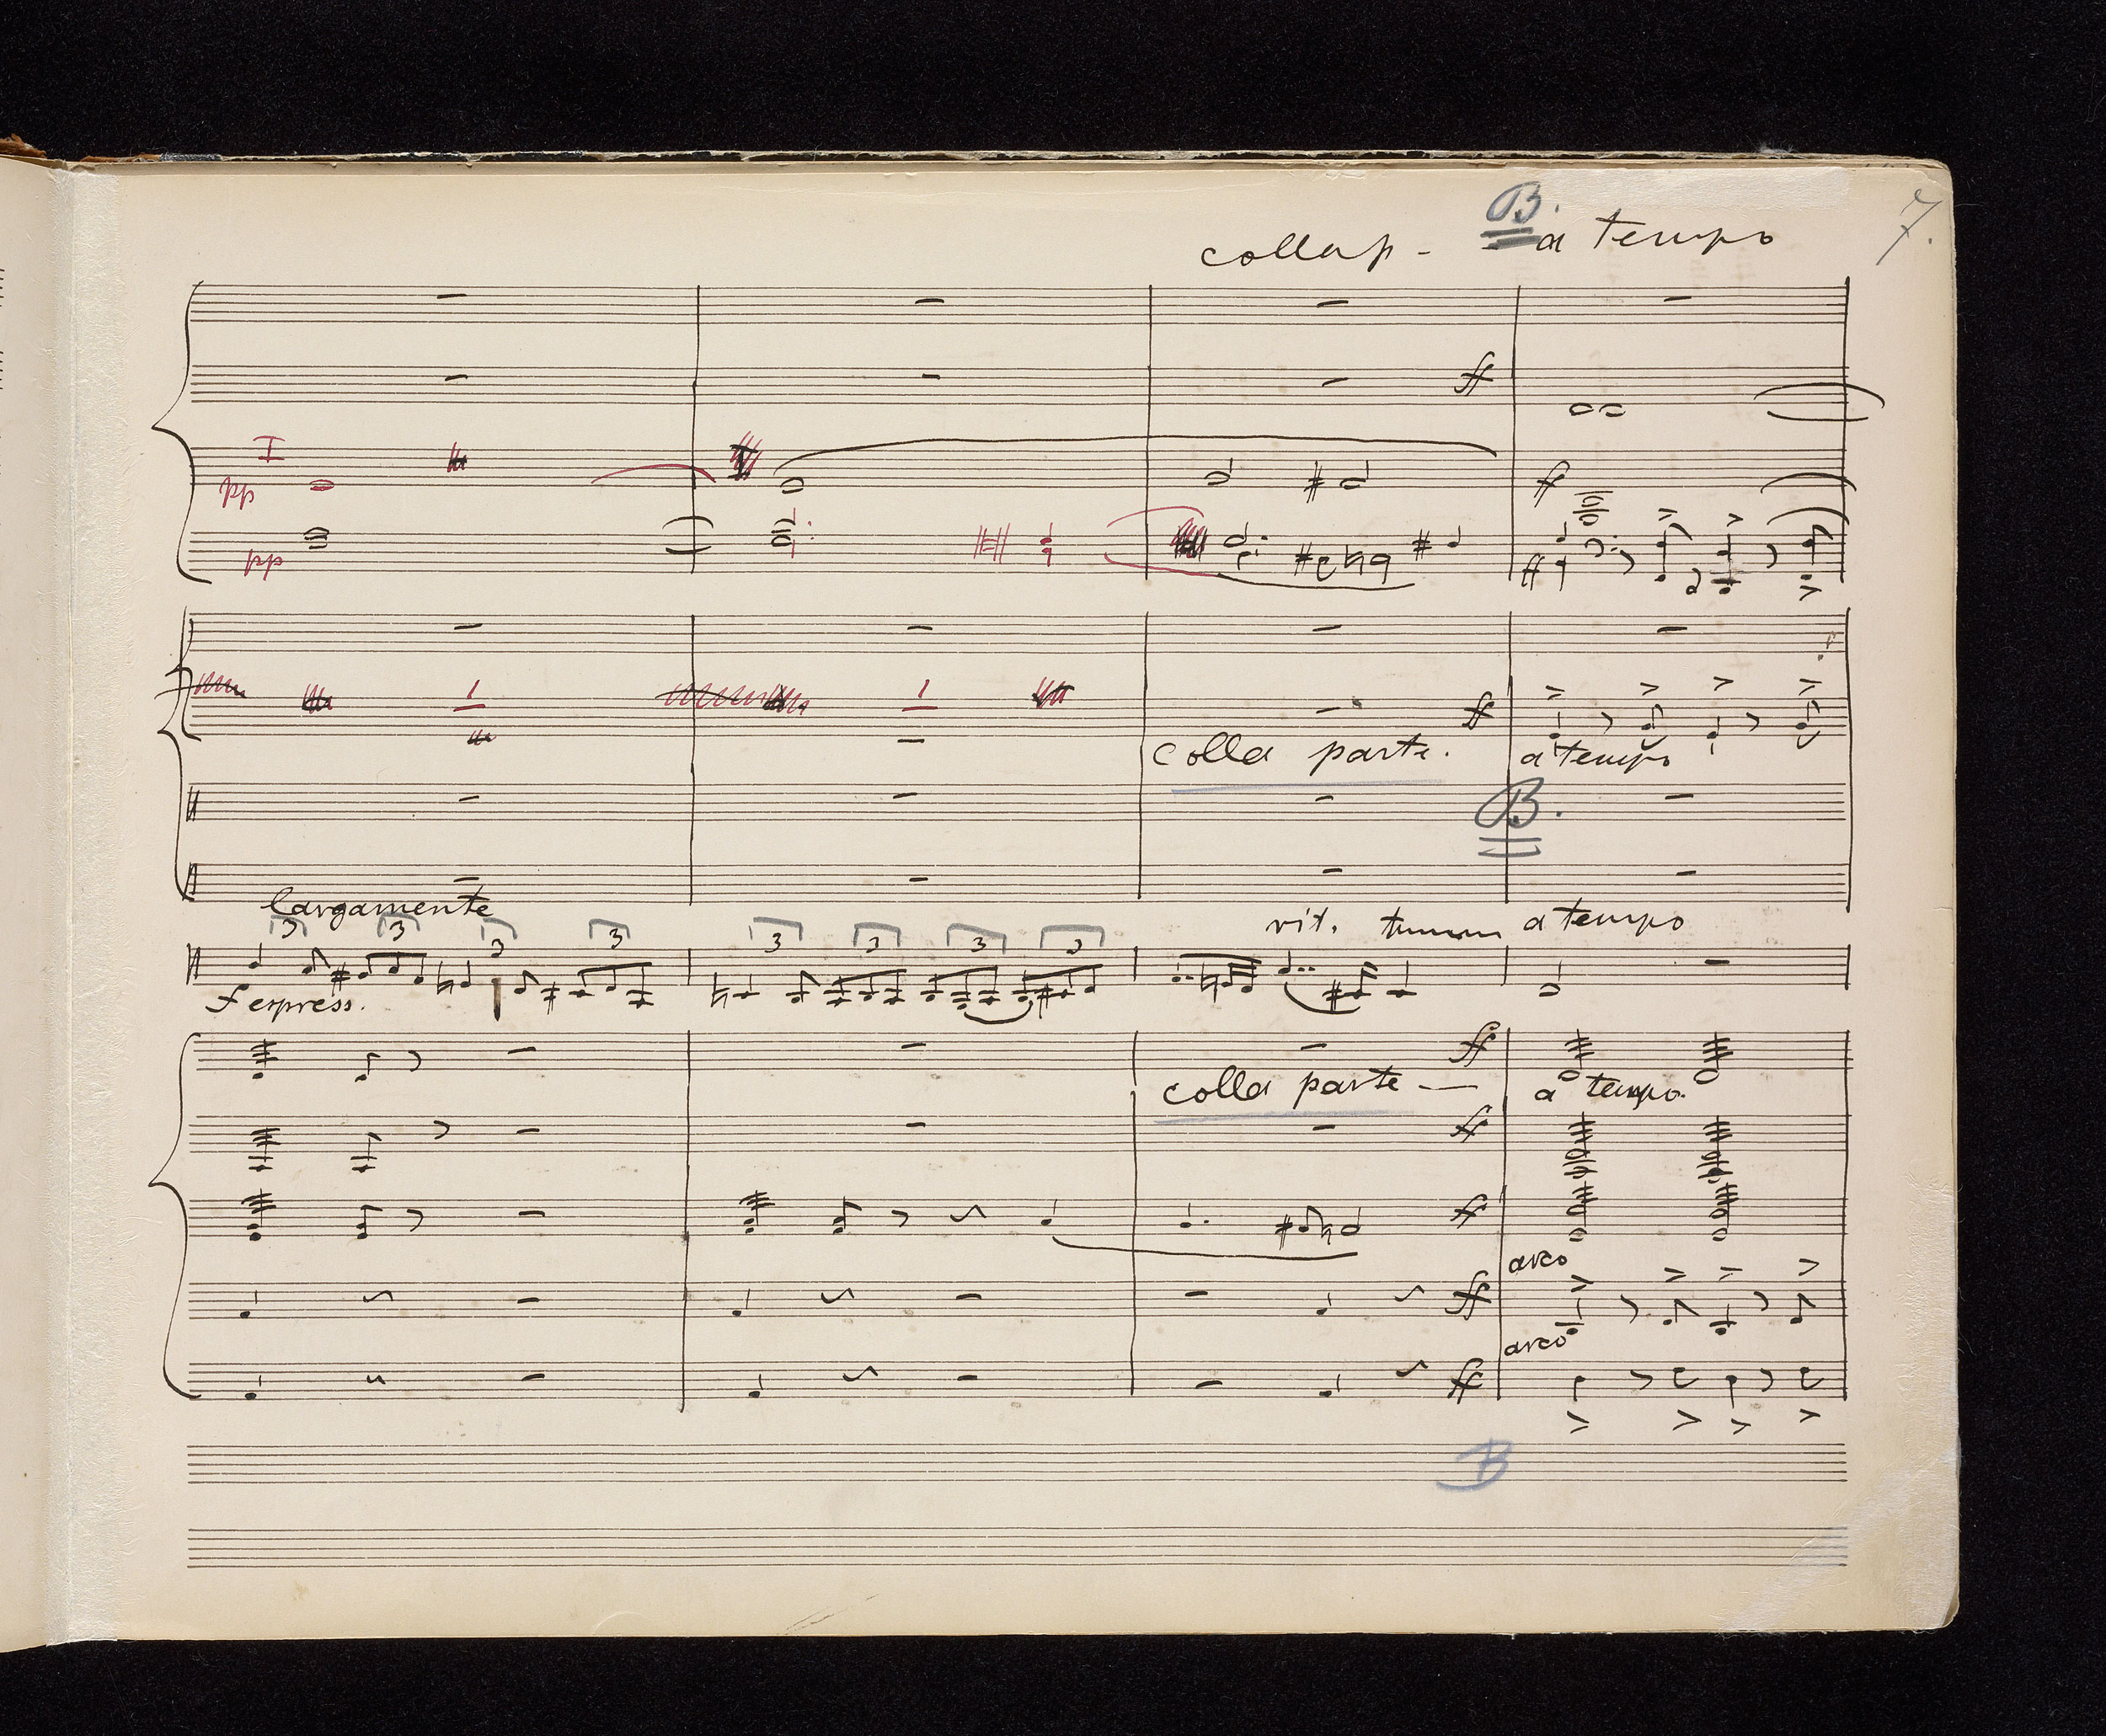 7.
B.
collap - a tempo
ff
I
pp
ff
pp
ff
ff
colla parte. a tempo
B.
largamente
3 3 3 3 3 3 3 3
rit. a tempo
f express.
ff
colla parte — a tempo.
ff
ff
arco
ff
arco
ff
B